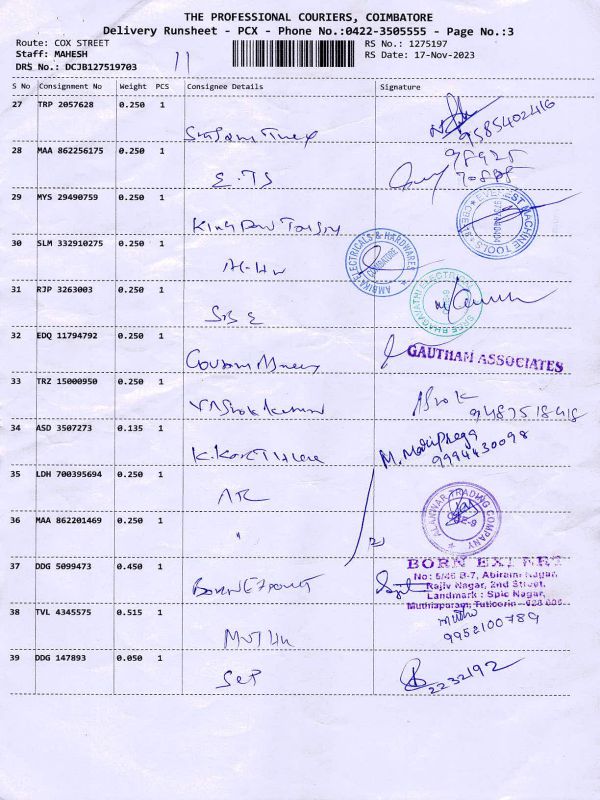 THE PROFESSIONAL COURIERS, COIMBATORE
Delivery Runsheet - PCX - Phone No.:0422-3505555 - Page No.:3
Route: COX STREET
RS No.: 1275197
Staff: MAHESH
RS Date: 17-Nov-2023
DRS No.: DCJB127519703
11
S No Consignment No Weight PCS Consignee Details Signature
27 TRP 2057628 0.250 1
9585402416
28 MAA 862256175 0.250 1
E.TS
29 MYS 29490759 0.250 1
EVEREST MACHINE TOOLS
30 SLM 332910275 0.250 1
AMBIKA ELECTRICALS & HARDWARES
COIMBATORE
31 RJP 3263003 0.250 1
SREE BHAGAVATHI ELECTRICALS
32 EDQ 11794792 0.250 1
GAUTHAM ASSOCIATES
33 TRZ 15000950 0.250 1
V Ashok Kumar
Ashok
9487518418
34 ASD 3507273 0.135 1
M.
9994430098
35 LDH 700395694 0.250 1
ATC
ALANWAR TRADING COMPANY
36 MAA 862201469 0.250 1
"
37 DDG 5099473 0.450 1
BORN EXPERT
No: 5/45 B-7, Abirami Nagar,
Rajiv Nagar, 2nd Street,
Landmark : Spic Nagar,
Muthiapuram, Tuticorin - 628 005
38 TVL 4345575 0.515 1
Muthu
Muthu
9952100789
39 DDG 147893 0.050 1
2232192